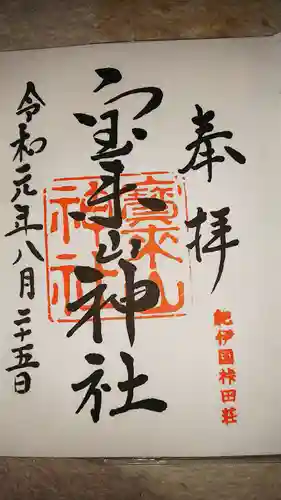 奉拝
紀伊国桛田荘
宝来山神社
寶来山
神社
令和元年八月二十五日